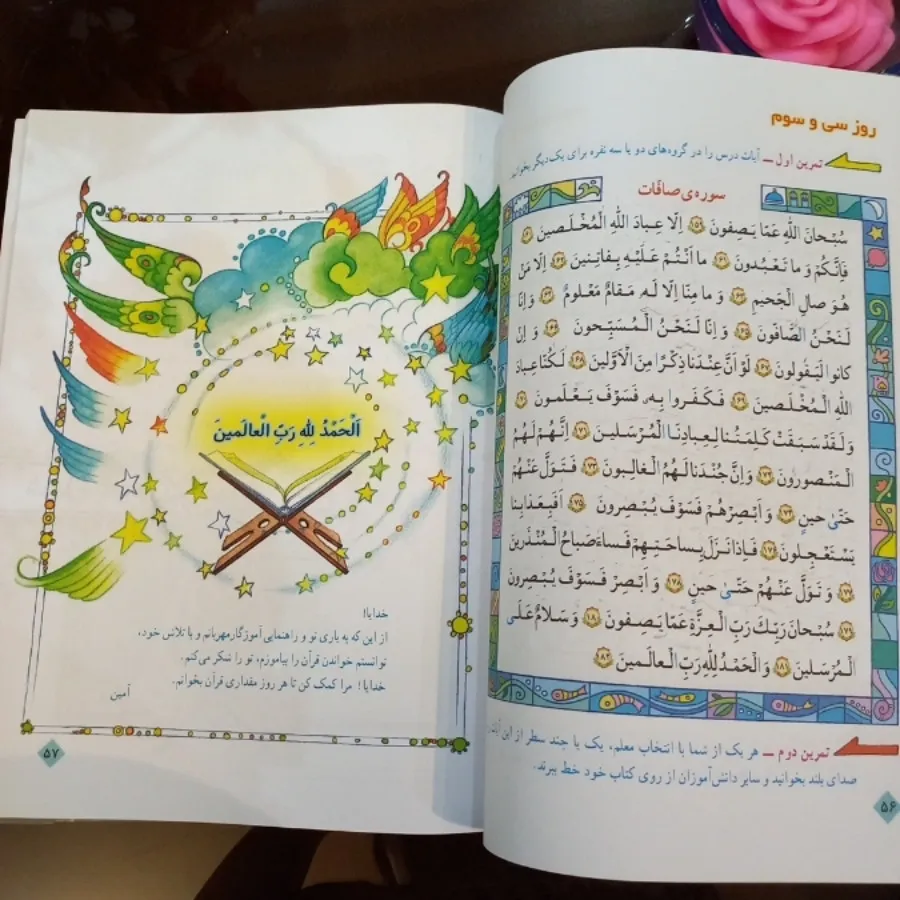 روز سی و سوم
تمرین اول ـ آیات درس را در گروه‌های دو یا سه نفره برای یک‌دیگر بخوانید.
سوره‌ی صافّات
سُبْحانَ اللّٰهِ عَمّا یَصِفونَ ﴿۱۵۹﴾ اِلّا عِبادَ اللّٰهِ الْمُخْلَصینَ ﴿۱۶۰﴾
فَاِنَّکُمْ وَ ما تَعْبُدونَ ﴿۱۶۱﴾ ما اَنْتُمْ عَلَیْهِ بِفاتِنینَ ﴿۱۶۲﴾ اِلّا مَنْ
هُوَ صالِ الْجَحیمِ ﴿۱۶۳﴾ وَ ما مِنّا اِلّا لَهُ مَقامٌ مَعْلومٌ ﴿۱۶۴﴾ وَ اِنّا
لَنَحْنُ الصّافّونَ ﴿۱۶۵﴾ وَ اِنّا لَنَحْنُ الْمُسَبِّحونَ ﴿۱۶۶﴾ وَ اِنْ
کانوا لَیَقولونَ ﴿۱۶۷﴾ لَوْ اَنَّ عِنْدَنا ذِکْرًا مِنَ الْاَوَّلینَ ﴿۱۶۸﴾ لَکُنّا عِبادَ
اللّٰهِ الْمُخْلَصینَ ﴿۱۶۹﴾ فَکَفَروا بِهِ فَسَوْفَ یَعْلَمونَ ﴿۱۷۰﴾
وَ لَقَدْ سَبَقَتْ کَلِمَتُنا لِعِبادِنَا الْمُرْسَلینَ ﴿۱۷۱﴾ اِنَّهُمْ لَهُمُ
الْمَنْصورونَ ﴿۱۷۲﴾ وَ اِنَّ جُنْدَنا لَهُمُ الْغالِبونَ ﴿۱۷۳﴾ فَتَوَلَّ عَنْهُمْ
حَتّیٰ حینٍ ﴿۱۷۴﴾ وَ اَبْصِرْهُمْ فَسَوْفَ یُبْصِرونَ ﴿۱۷۵﴾ اَفَبِعَذابِنا
یَسْتَعْجِلونَ ﴿۱۷۶﴾ فَاِذا نَزَلَ بِساحَتِهِمْ فَساءَ صَباحُ الْمُنْذَرینَ
﴿۱۷۷﴾ وَ تَوَلَّ عَنْهُمْ حَتّیٰ حینٍ ﴿۱۷۸﴾ وَ اَبْصِرْ فَسَوْفَ یُبْصِرونَ
﴿۱۷۹﴾ سُبْحانَ رَبِّکَ رَبِّ الْعِزَّةِ عَمّا یَصِفونَ ﴿۱۸۰﴾ وَ سَلامٌ عَلَی
الْمُرْسَلینَ ﴿۱۸۱﴾ وَ الْحَمْدُ لِلّٰهِ رَبِّ الْعالَمینَ ﴿۱۸۲﴾
تمرین دوم ـ هر یک از شما با انتخاب معلم، یک یا چند سطر از این آیات
صدای بلند بخوانید و سایر دانش‌آموزان از روی کتاب خود خط ببرند.
۵۶
اَلْحَمْدُ لِلّٰهِ رَبِّ الْعالَمینَ
خدایا!
از این که به یاری تو و راهنمایی آموزگار مهربانم و با تلاش خود،
توانستم خواندن قرآن را بیاموزم، تو را شکر می‌کنم.
خدایا! مرا کمک کن تا هر روز مقداری قرآن بخوانم.
آمین
۵۷